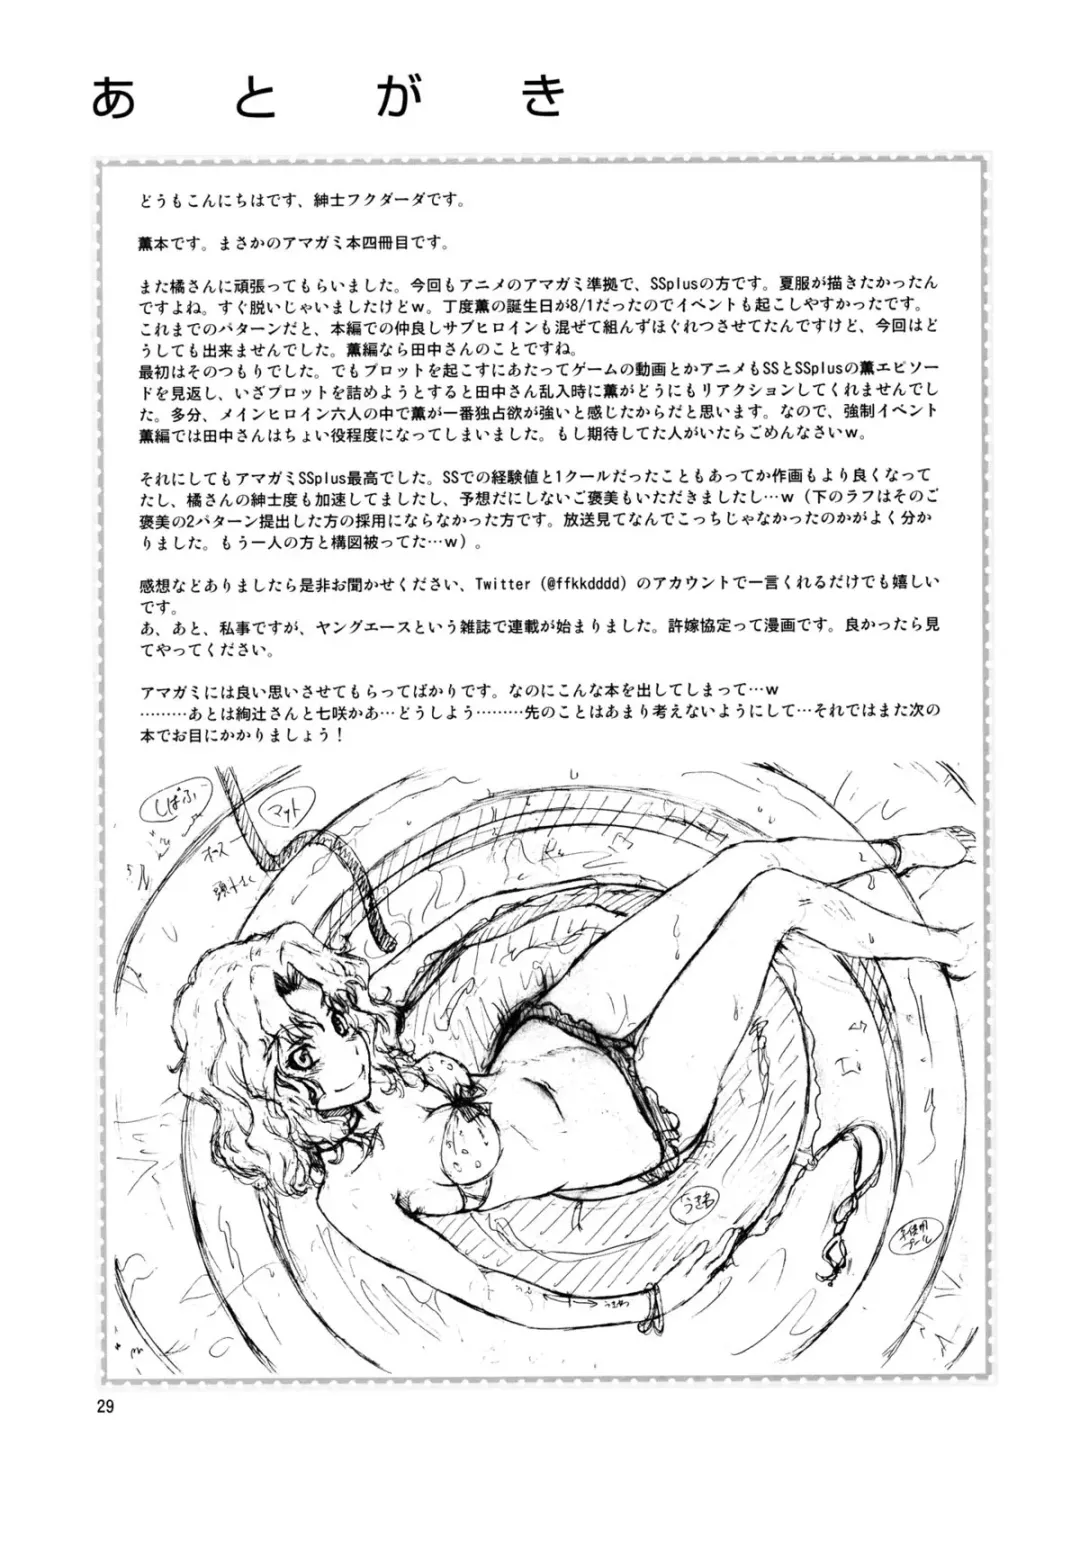 あとがき
どうもこんにちはです、紳士フクダーダです。
薫本です。まさかのアマガミ本四冊目です。
また橘さんに頑張ってもらいました。今回もアニメのアマガミ準拠で、SSplusの方です。夏服が描きたかったん
ですよね。すぐ脱いじゃいましたけどw。丁度薫の誕生日が8/1だったのでイベントも起こしやすかったです。
これまでのパターンだと、本編での仲良しサブヒロインも混ぜて組んずほぐれつさせてたんですけど、今回はど
うしても出来ませんでした。薫編なら田中さんのことですね。
最初はそのつもりでした。でもプロットを起こすにあたってゲームの動画とかアニメもSSとSSplusの薫エピソー
ドを見返し、いざプロットを詰めようとすると田中さん乱入時に薫がどうにもリアクションしてくれませんでし
た。多分、メインヒロイン六人の中で薫が一番独占欲が強いと感じたからだと思います。なので、強制イベント
薫編では田中さんはちょい役程度になってしまいました。もし期待してた人がいたらごめんなさいw。
それにしてもアマガミSSplus最高でした。SSでの経験値と1クールだったこともあってか作画もより良くなって
たし、橘さんの紳士度も加速してましたし、予想だにしないご褒美もいただきましたし…w（下のラフはそのご
褒美の2パターン提出した方の採用にならなかった方です。放送見てなんでこっちじゃなかったのかがよく分か
りました。もう一人の方と構図被ってた…w）。
感想などありましたら是非お聞かせください、Twitter（@ffkkdddd）のアカウントで一言くれるだけでも嬉しい
です。
あ、あと、私事ですが、ヤングエースという雑誌で連載が始まりました。許嫁協定って漫画です。良かったら見
てやってください。
アマガミには良い思いさせてもらってばかりです。なのにこんな本を出してしまって…w
………あとは絢辻さんと七咲かあ…どうしよう………先のことはあまり考えないようにして…それではまた次の
本でお目にかかりましょう！
しばふ
マット
ホース
うきわ
29